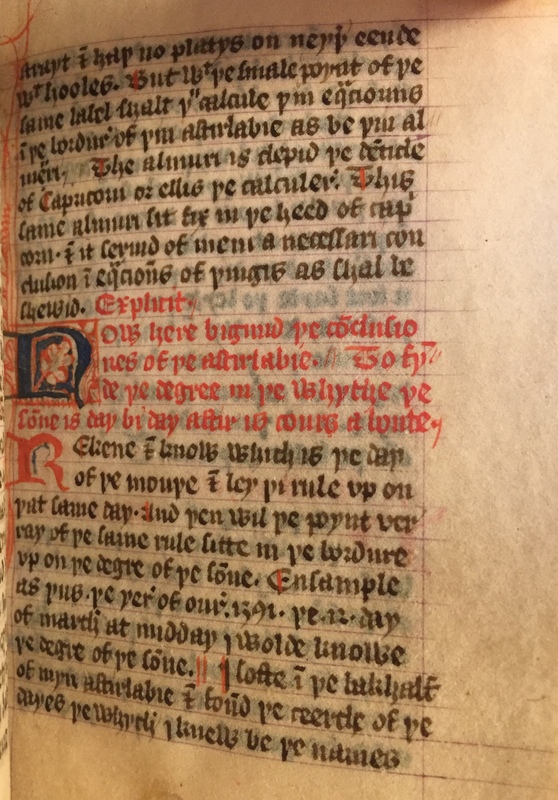 strayt & haþ no platys on neyþ̉ eende
wt hooles. But wt þe smale poynt of þe
same label shalt yu calcule þin eq̃ciouns
ĩ þe bordur̉ of þin astirlabie as be þin al
mury. The almuri is clepid þe dẽticle
of Capricorn or ellis þe calculer̉. This
same almuri sit fix in þe heed of cap̉
corn. & it seruid of meni a necessari con
clusion ĩ eq̃cioñs of þingis as shal be
shewid. Explicit.
Now here bigynnd þe cõclusio
nes of þe astirlabie. To fy
de þe degree in þe Whyche þe
sõne is day bi day aftir is cours a boute.
Rekene & know which is þe day
of þe monþe & ley þi rule vp on
þat same day. And þen wil þe poynt ver
ray of þe same rule sitte in þe bordure
vp on þe degre of þe sõne. Ensample
as þus. þe yer̉ of our̉. 1391. þe .12. day
of march at midday j wolde knowe
þe degre of þe sõne. I softe ĩ þe bakhalf
of myn astirlabie & foũd þe ceercle of þe
dayes þe whych j knew be þe names